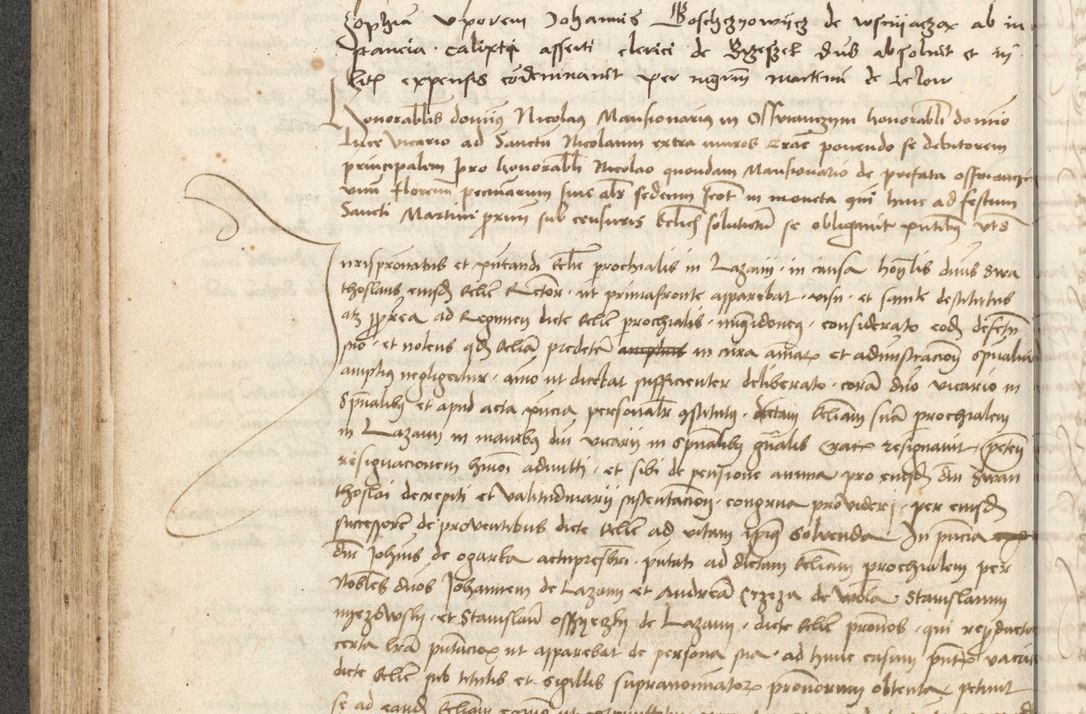 Zophiam uxorem Johannis Boschczowijcz de Wsnijaczax ab in
stancia Calixti asserti clerici de Brzeszek dns absolvit et in
litis expensis condemnavit per nigrum Martinum de Lelow
Honorabilis dominus Nicolaus Mansionarius in Osswanczym honorabli domino
Luce vicario ad Sanctum Nicolaum extra muros Crac ponendo se debitorem
principalem pro honorabli Nicolao quondam Mansionario de prefata Osswancz
unum florenum pecuniarum sive alr sedecim scot in moneta qui hinc ad festum
Sancti Martini prim sub censuris ecclesie solutum se obligavit pntibus uts
Jurispronatus et pntandi ecclie prochialis in Lazani in causa honlis dnus Swia
thoslaus eiusdem ecclie Rector ut primafronte apparebat visu et sanitate destitutus
atque propterea ad Regimen dicte ecclie prochialis minusidoneus considerato eodem defectu
suo et nolens quod ecclia predicta amplius in cura animarum et administracione spiritualium
amplius negligeretur animo ut dicebat sufficienter deliberato coram dno vicario in
spiritualibus et apud acta pncia personaliter constitutus dictam eccliam suam prochialem
in Lazani in manibus dni vicarii in spiritualibus gnalis Crac resignavit petens
resignacionem hmoi admitti et sibi de pensione annua pro eiusdem dni Swian
thoslai decrepiti et valitudinarii sustentacione congrua provideri per eiusdem
successorem de proventibus dicte ecclie ad vitam ipsius solvenda In pncia
dni Johannis de Ogarka actupresbri pntati ad dictam eccliam prochialem per
Nobles dnos Johannem de Lazani et Andream Czeza de Wola Stanislaum
Nyezdwsky et Stanislaum Ossyeczky de Lazani dicte ecclie pronos qui reproducto
certa lra pntacionis ut apparebat de persona sua ad hunc casum pntis vacacionis
dicte ecclie sub titulis et sigillis supranominatorum pronorum obtenta petivit
se ad eandem eccliam